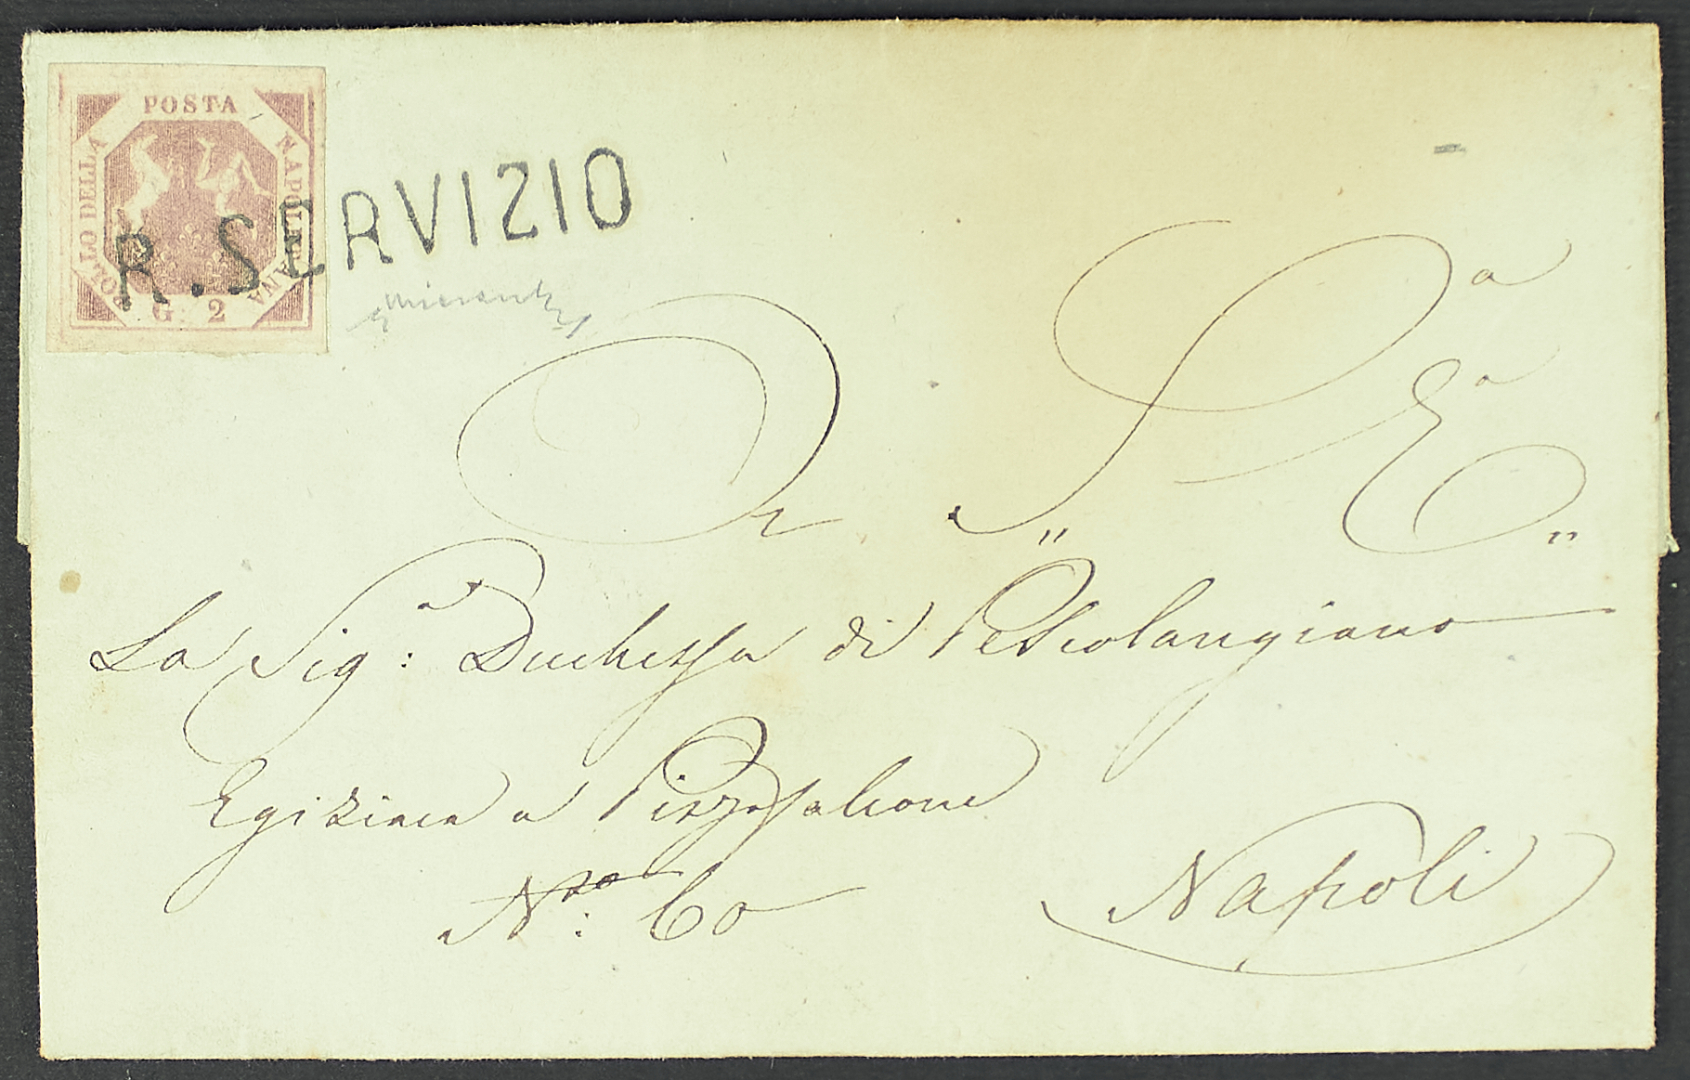 POSTA
NAPOLETANA
BOLLO DELLA
G. 2
R. SERVIZIO
A S. E.
La Sig.a Duchessa di Pescolangiano
Egiziaca a Pizzofalcone
N.ro: 60
Napoli